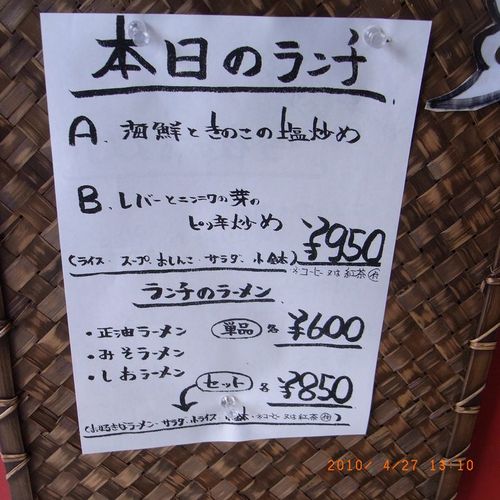 本日のランチ
A、海鮮ときのこの塩炒め
B、レバーとニンニクの芽の
ピリ辛炒め
¥950
(ライス・スープ、おしんこ・サラダ、小鉢)
※コーヒー又は紅茶付
ランチのラーメン
・正油ラーメン
・みそラーメン
・しおラーメン
単品 各 ¥600
セット 各 ¥850
ラーメン・サラダ・小ライス ※コーヒー又は紅茶付)
2010/ 4/27 13:10